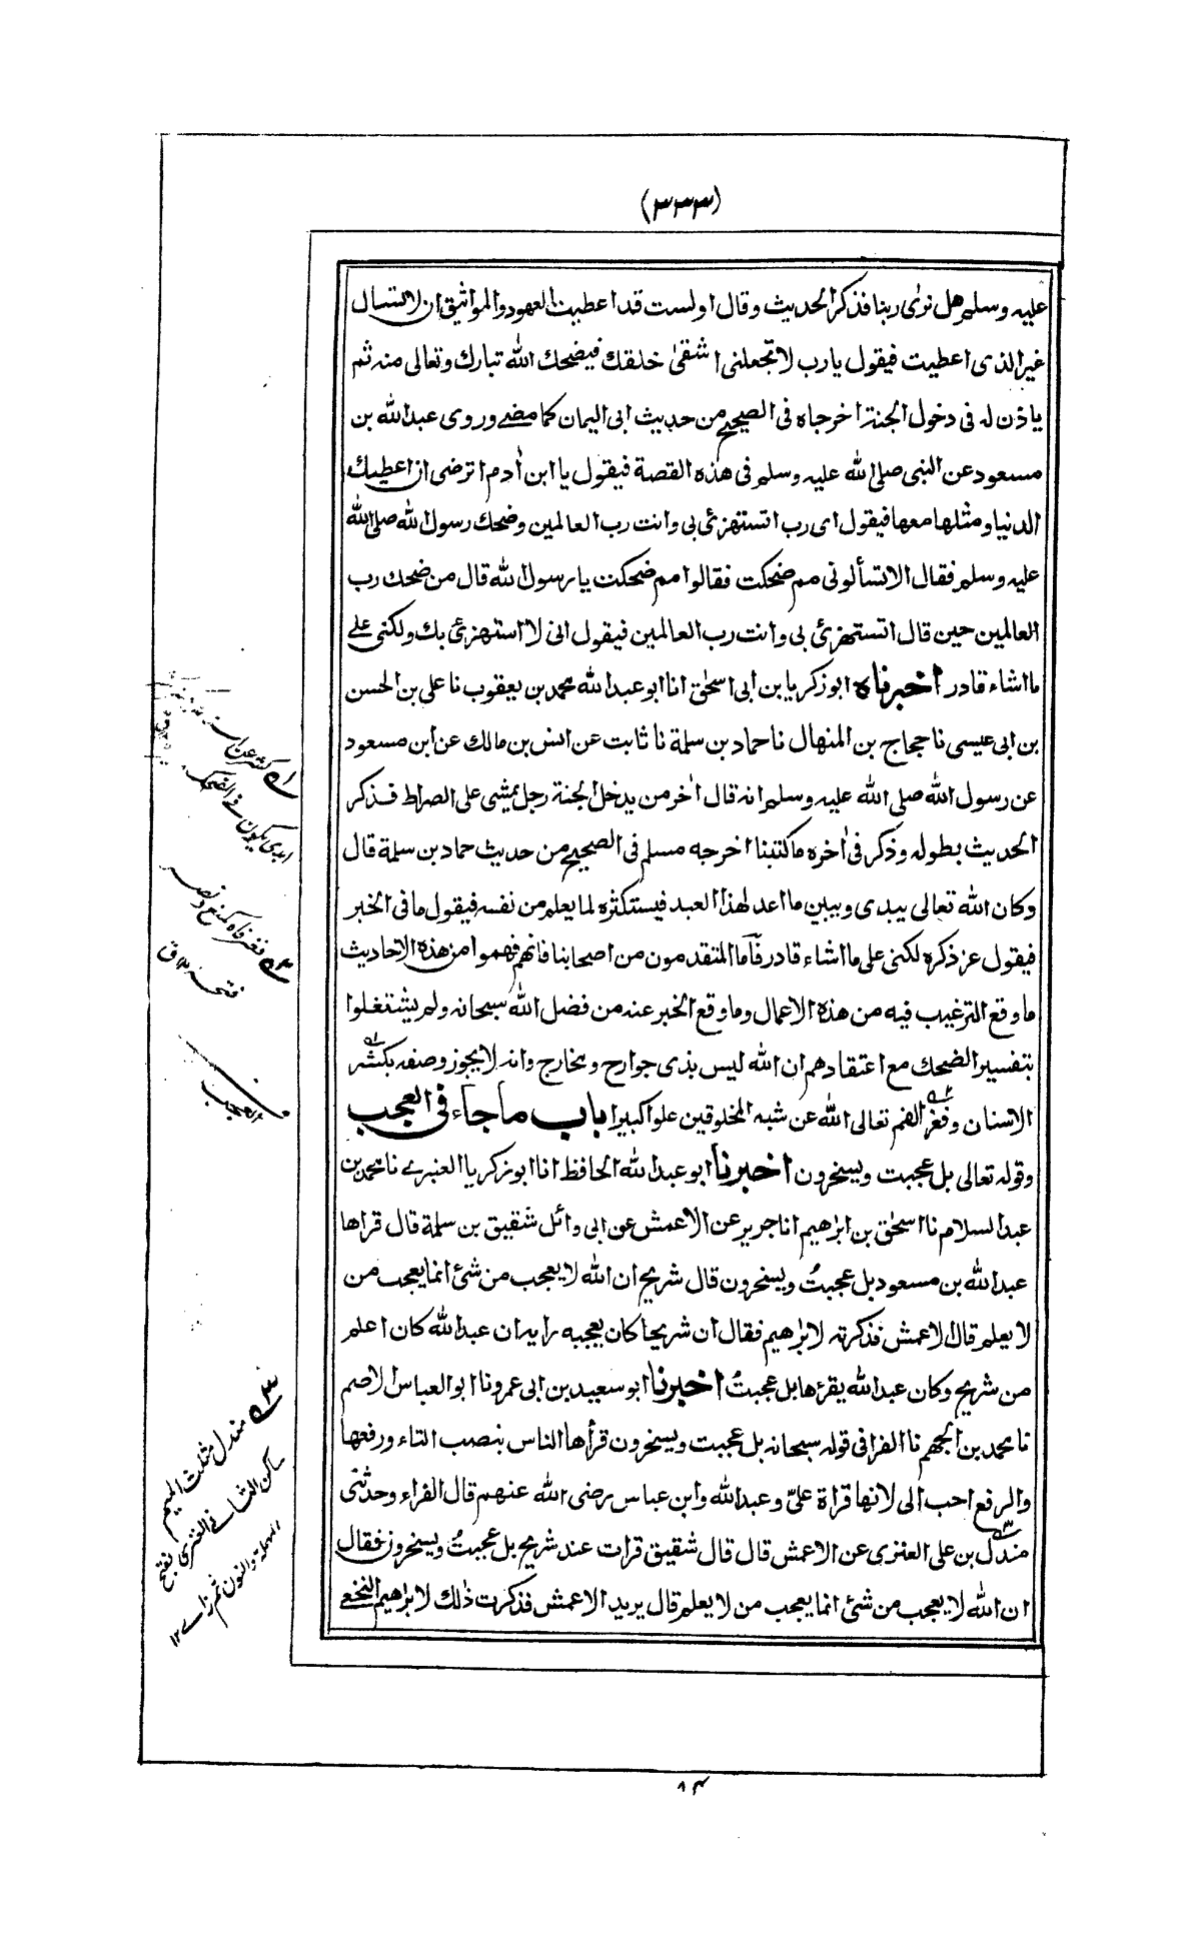 (٣٣٣)
عليه وسلم هل نرى ربنا فذكر الحديث وقال اولست قد اعطيت العهود والمواثيق ان لا تسال
غير الذى اعطيت فيقول يا رب لا تجعلنى اشقىٰ خلقك فيضحك الله تبارك وتعالى منه ثم
ياذن له فى دخول الجنة اخرجاه فى الصحيح من حديث ابى اليمان كما مضے وروى عبد الله بن
مسعود عن النبى صلى الله عليه وسلم فى هذه القصة فيقول يا ابن اٰدم اترضى ان اعطيك
الدنيا ومثلها معها فيقول اى رب اتستهزئ بى وانت رب العالمين وضحك رسول الله صلى الله
عليه وسلم فقال الا تسألونى مم ضحكت فقالوا مم ضحكت يا رسول الله قال من ضحك رب
العالمين حين قال اتستهزئ بى وانت رب العالمين فيقول انى لا استهزئ بك ولكنى على
ما اشاء قادر اخبرناه ابو زكريا بن ابى اسحٰق انا ابو عبد الله محمد بن يعقوب نا على بن الحسن
بن ابى عيسى نا حجاج بن المنهال نا حماد بن سلمة نا ثابت عن انس بن مالك عن ابن مسعود
عن رسول الله صلى الله عليه وسلم انه قال اٰخر من يدخل الجنة رجل يمشى على الصراط فذكر
الحديث بطوله وذكر فى اٰخره ما كتبنا اخرجه مسلم فى الصحيح من حديث حماد بن سلمة قال
وكان الله تعالى يبدى ويبين ما اعد لهذا العبد فيستكثره لما يعلم من نفسه فيقول ما فى الخبر
فيقول عز ذكره لكنى على ما اشاء قادر فاما المتقدمون من اصحابنا فانهم فهموا من هذه الاحاديث
ما وقع الترغيب فيه من هذه الاعمال وما وقع الخبر عنه من فضل الله سبحانه ولم يشتغلوا
بتفسير الضحك مع اعتقادهم ان الله ليس بذى جوارح ومخارج وانه لا يجوز وصفه بكشر
الاسنان وفغر الفم تعالى الله عن شبه المخلوقين علوا كبيرا باب ما جاء فى العجب
وقوله تعالى بل عجبت ويسخرون اخبرنا ابو عبد الله الحافظ انا ابو زكريا العنبرے نا محمد بن
عبد السلام نا اسحٰق بن ابرٰهيم انا جرير عن الاعمش عن ابى وائل شقيق بن سلمة قال قراها
عبد الله بن مسعود بل عجبتُ ويسخرون قال شريح ان الله لا يعجب من شئ انما يعجب من
لا يعلم قال الاعمش فذكرته لابرٰهيم فقال ان شريحا كان يعجبه رايه ان عبد الله كان اعلم
من شريح وكان عبد الله يقرءها بل عجبتُ اخبرنا ابو سعيد بن ابى عمرو نا ابو العباس الاصم
نا محمد بن الجهم نا الفرا فى قوله سبحانه بل عجبت ويسخرون قرأها الناس بنصب التاء ورفعها
والرفع احب الى لانها قراة علىّ وعبد الله وابن عباس رضى الله عنهم قال الفراء وحدثنى
مندل بن على العنزى عن الاعمش قال قال شقيق قرات عند شريح بل عجبتُ ويسخرون فقال
ان الله لا يعجب من شئ انما يعجب من لا يعلم قال يريد الاعمش فذكرت ذٰلك لابراهيم النخعے
كشر عن
ابدى يكون فى الضحك
فغر فاه كمنع ونصر
فتحه ١٢ ق
العجب
مندل مثلث الميم
ساكن الثانے العنزى بفتح
المهملة والنون ثم زاے ١٢
٨٤